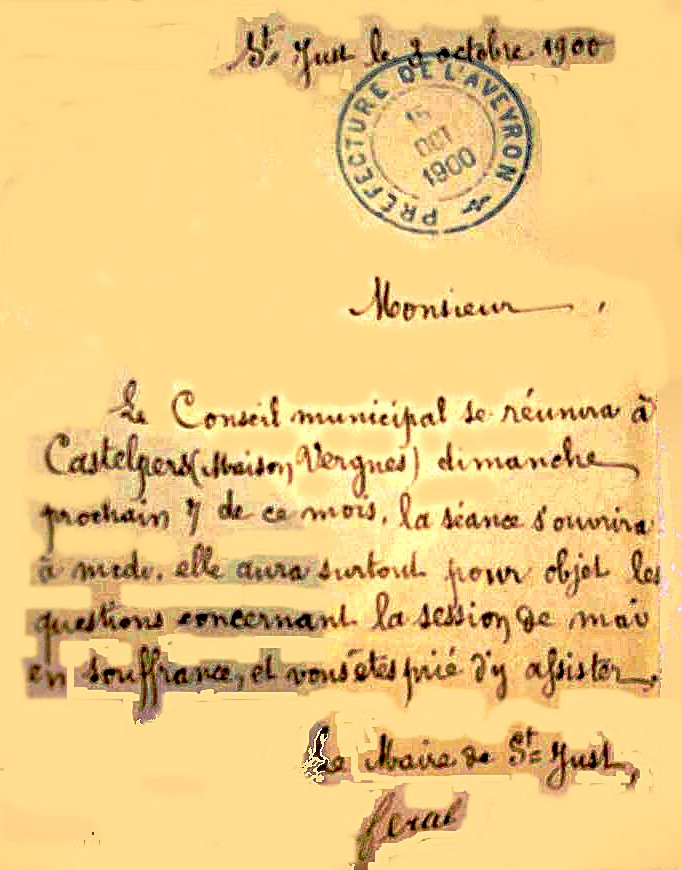 St Just le 3 octobre 1900
PRÉFECTURE DE L'AVEYRON
15
OCT
1900
Monsieur,
Le Conseil municipal se réunira à
Castelpers (Maison Vergnes) dimanche
prochain 7 de ce mois. la séance s'ouvrira
à midi. elle aura surtout pour objet les
questions concernant la session de mai
en souffrance, et vous êtes prié d'y assister.
Le Maire de St Just,
feral